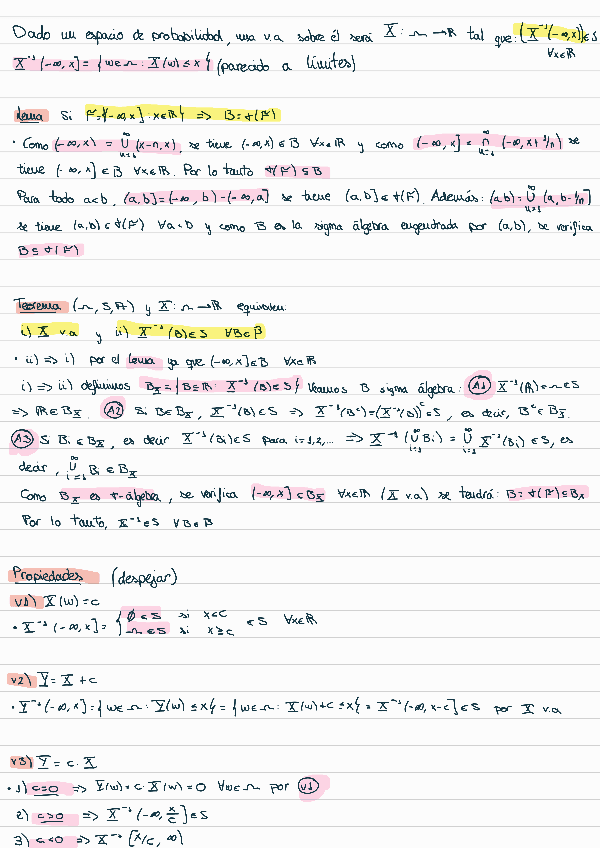 Dado un espacio de probabilidad, una v.a sobre él será X: Ω → ℝ tal que: (X⁻¹(-∞,x]) ∈ S ∀x∈ℝ
X⁻¹(-∞,x] = {w∈Ω : X(w) ≤ x} (parecido a límites)
Lema Si F = {(-∞,x] : x∈ℝ} => B = σ(F)
· Como (-∞,x) = ∪_{n=1}^∞ (x-n,x), se tiene (-∞,x) ∈ B ∀x∈ℝ y como (-∞,x] = ∩_{n=1}^∞ (-∞,x+1/n) se
tiene (-∞,x] ∈ B ∀x∈ℝ. Por lo tanto σ(F) ⊆ B
Para todo a<b, (a,b] = (-∞,b) - (-∞,a] se tiene (a,b] ∈ σ(F). Además: (a,b) = ∪_{n=1}^∞ (a,b-1/n]
se tiene (a,b) ∈ σ(F) ∀a<b y como B es la sigma álgebra engendrada por (a,b), se verifica
B ⊆ σ(F)
Teorema (Ω, S, A) y X: Ω → ℝ equivalen:
i) X v.a y ii) X⁻¹(B) ∈ S ∀B∈β
· ii) => i) por el lema ya que (-∞,x] ∈ B ∀x∈ℝ
i) => ii) definimos B_X = {B⊆ℝ : X⁻¹(B) ∈ S} Veamos B sigma álgebra: A1 X⁻¹(ℝ) = Ω ∈ S
=> ℝ ∈ B_X. A2 Si B∈B_X, X⁻¹(B) ∈ S => X⁻¹(Bᶜ) = (X⁻¹(B))ᶜ ∈ S, es decir, Bᶜ ∈ B_X.
A3 Si Bi ∈ B_X, es decir X⁻¹(Bi) ∈ S para i=1,2,... => X⁻¹(∪_{i=1}^∞ Bi) = ∪_{i=1}^∞ X⁻¹(Bi) ∈ S, es
decir, ∪_{i=1}^∞ Bi ∈ B_X
Como B_X es σ-álgebra, se verifica (-∞,x] ∈ B_X ∀x∈ℝ (X v.a) se tendrá: B = σ(F) ⊆ B_X
Por lo tanto, X⁻¹ ∈ S ∀B∈B
Propiedades (despejar)
v1) X(w) = c
· X⁻¹(-∞,x] = { ∅ ∈ S si x<c
Ω ∈ S si x≥c ∈ S ∀x∈ℝ
v2) Y = X + c
· Y⁻¹(-∞,x] = {w∈Ω : Y(w) ≤ x} = {w∈Ω : X(w)+c ≤ x} = X⁻¹(-∞,x-c] ∈ S por X v.a
v3) Y = c·X
· 1) c=0 => Y(w) = c·X(w) = 0 ∀w∈Ω por v1
2) c>0 => X⁻¹(-∞, x/c] ∈ S
3) c<0 => X⁻¹[x/c, ∞)